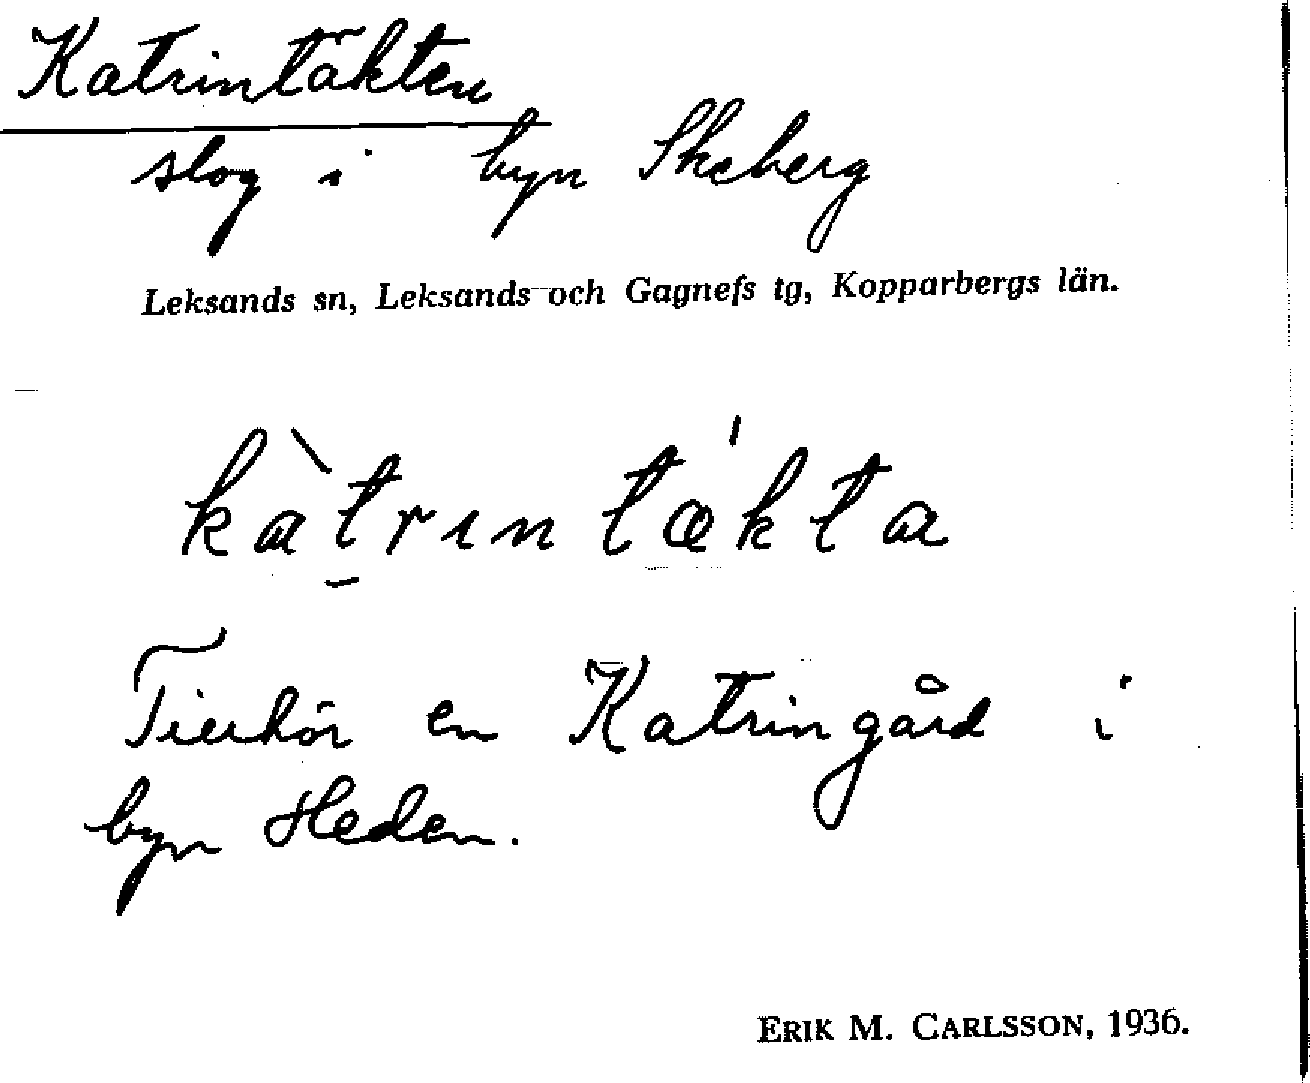 Katrintäkten
slog i byn Skeberg
Leksands sn, Leksands och Gagnefs tg, Kopparbergs län.
kàt̠rın tǽkta
Tillhör en Katringård i
byn Heden.
ERIK M. CARLSSON, 1936.